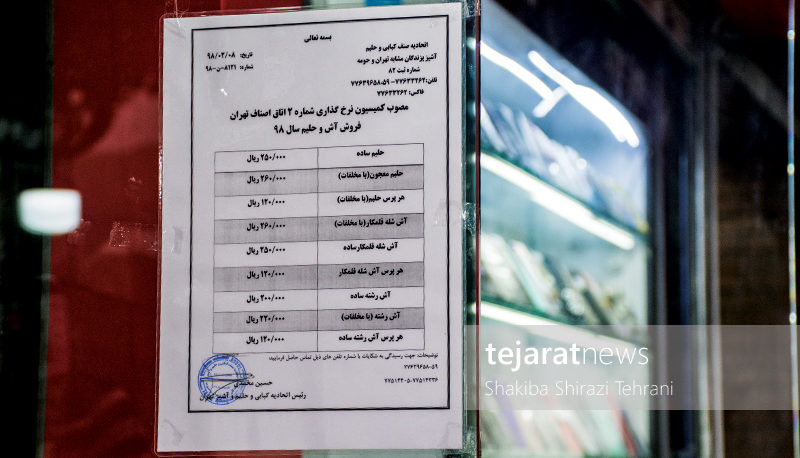 بسمه تعالی
اتحادیه صنف کبابی و حلیم
آشپز پزندگان مشابه تهران و حومه
شماره ثبت ۸۲
تلفن: ۵۹-۷۷۶۳۹۶۵۸ -۷۷۶۳۳۲۶۲
فاکس: ۷۷۶۳۳۲۶۲
تاریخ: ۹۸/۰۲/۰۸
شماره: ۸۱۲۱-ن-۹۸
مصوب کمیسیون نرخ گذاری شماره ۲ اتاق اصناف تهران
فروش آش و حلیم سال ۹۸
حلیم ساده ۲۵۰/۰۰۰ ریال
حلیم معجون(با مخلفات) ۲۶۰/۰۰۰ ریال
هر پرس حلیم(با مخلفات) ۱۲۰/۰۰۰ ریال
آش شله قلمکار(با مخلفات) ۲۶۰/۰۰۰ ریال
آش شله قلمکارساده ۲۵۰/۰۰۰ ریال
هر پرس آش شله قلمکار ۱۲۰/۰۰۰ ریال
آش رشته ساده ۲۰۰/۰۰۰ ریال
آش رشته (با مخلفات) ۲۲۰/۰۰۰ ریال
هر پرس آش رشته ساده ۱۲۰/۰۰۰ ریال
توضیحات: جهت رسیدگی به شکایات با شماره تلفن های ذیل تماس حاصل فرمایید:
۷۷۶۳۹۶۵۸-۵۹
۷۷۵۱۴۴۰۵-۷۷۵۱۴۳۳۶
حسین محمدی
رئیس اتحادیه کبابی و حلیم و آشپز تهران
tejaratnews
Shakiba Shirazi Tehrani